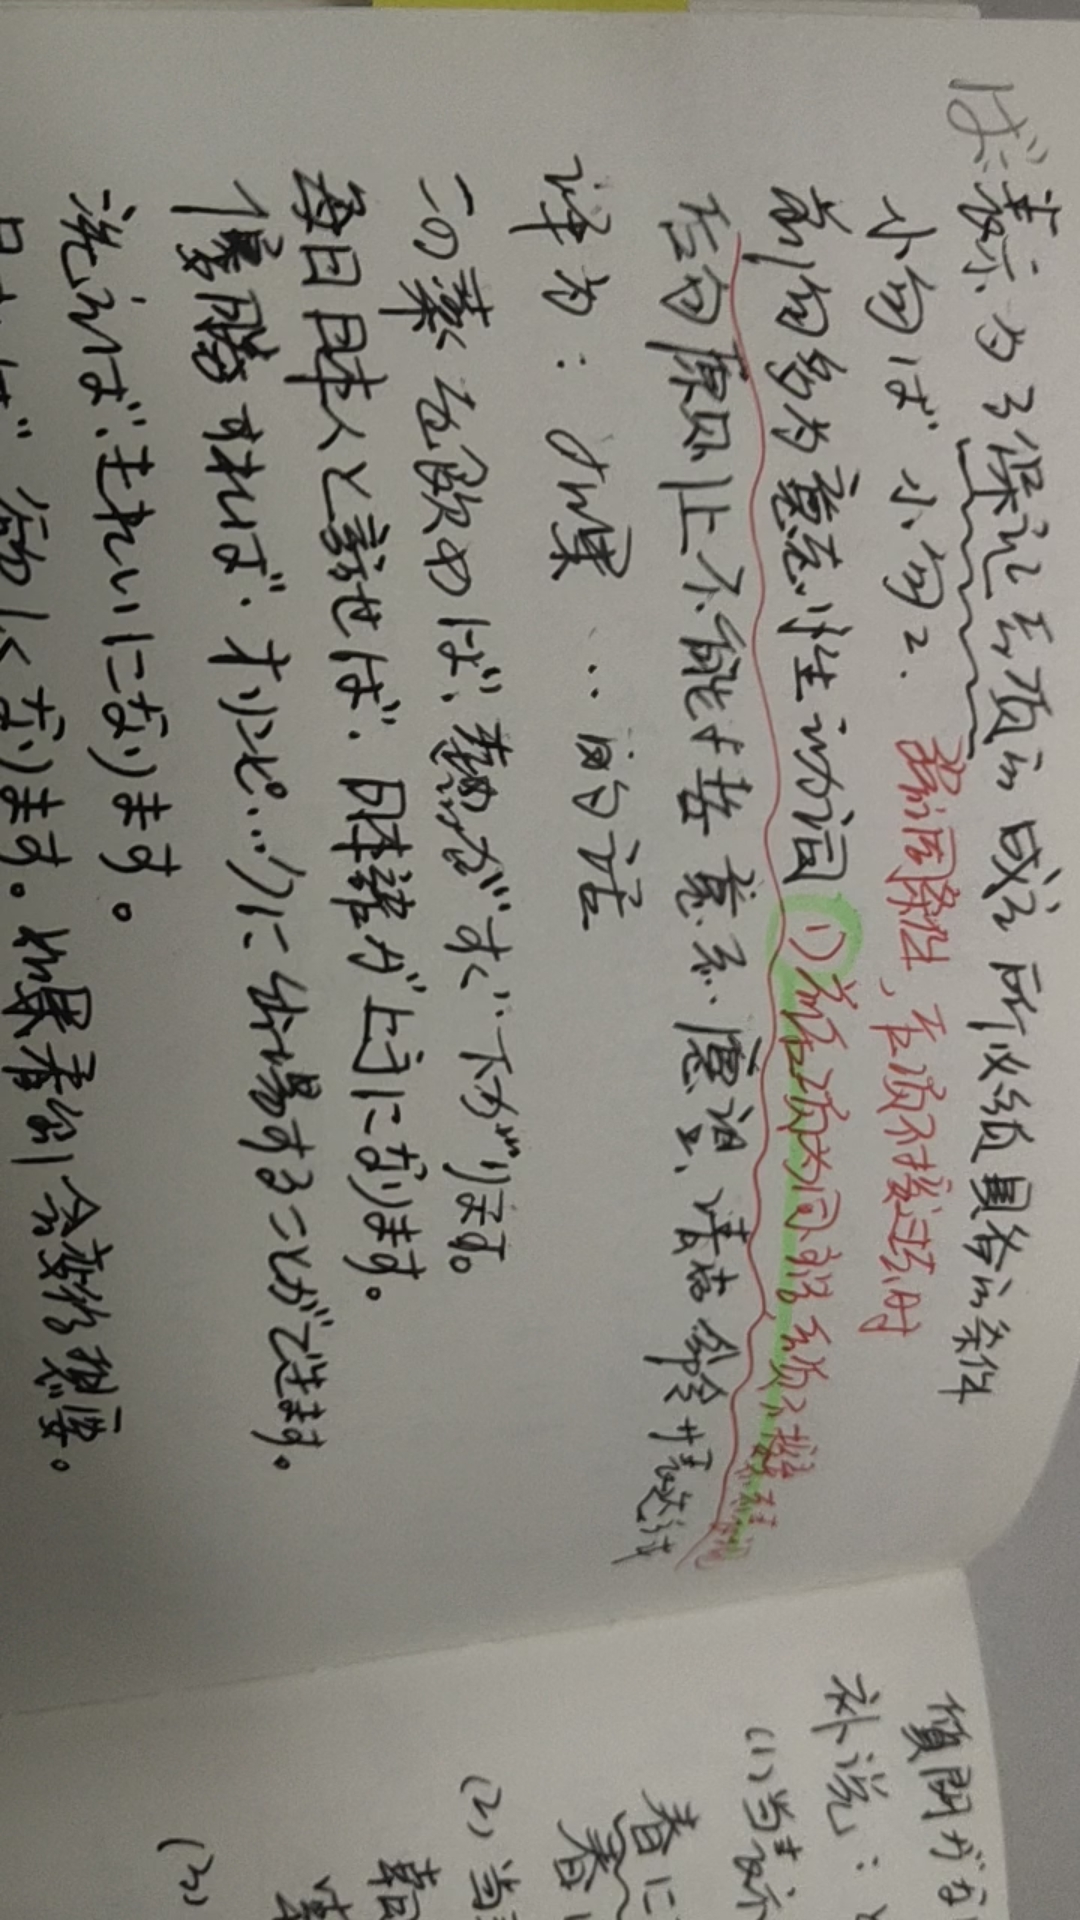 ば：表示为了保证后项的成立所必须具备的条件
小句1ば 小句2. 强调条件、后项不接过去时
前句多为意志性动词 (1)前后项为同主语 后项不接
后句原则上不能接意志、愿望、请求、命令
译为：如果…的话
この薬を飲めば、熱がすぐ下がります。
毎日日本人と話せば、日本語が上手になります。
優勝すれば、オリンピックに出場することができます。
洗えば、きれいになります。
なります。如果春 会变得 。
質問が
补说：
(1)当表示
春に
春
(2)当
韓国
(3)